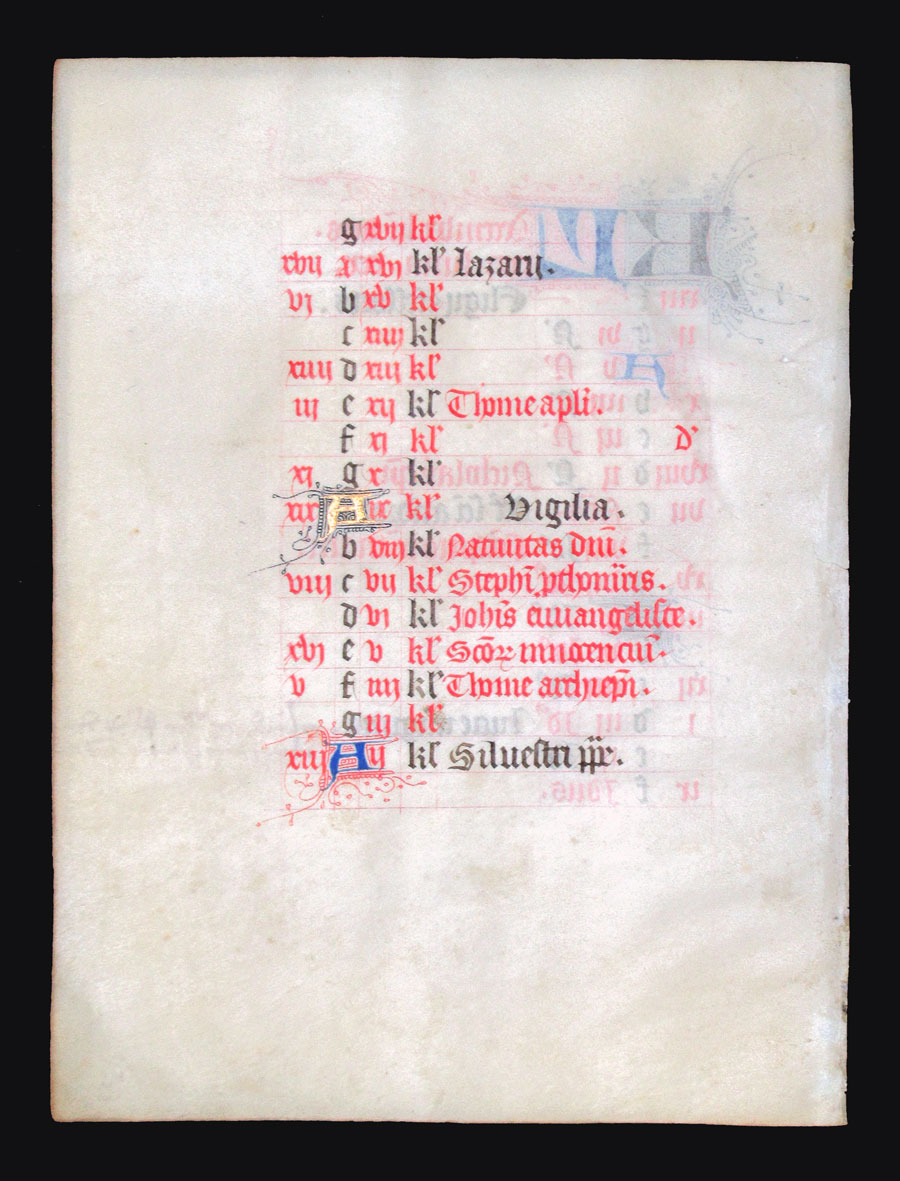 g xvij kl'
xvij A xvj kl' Lazarij.
vj b xv kl'
c xiiij kl'
xiiij d xiij kl'
iij e xij kl' Thome apli.
f xj kl' D'
xj g x kl'
xix A ix kl' Vigilia.
b viij kl' Natiuitas dn̄i.
viij c vij kl' Stephi
d vj kl' Joh̄is euuangeliste.
xvj e v kl' Sc̄oꝝ innocenciu̅.
v f iiij kl' Thome archiep̄i.
g iij kl'
xiij A ij kl' Siluestri pp̄.